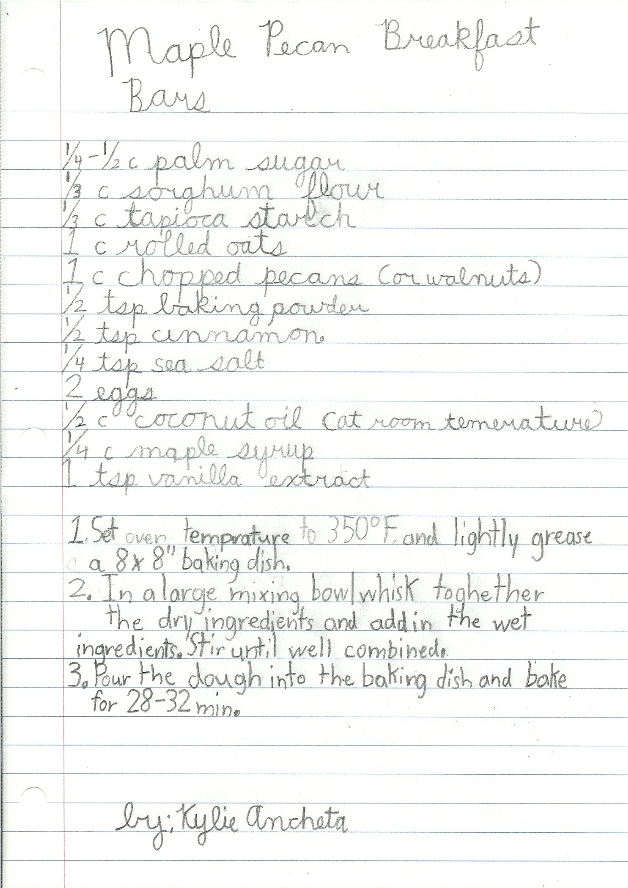 Maple Pecan Breakfast
Bars
1/4-1/2 c palm sugar
1/3 c sorghum flour
1/3 c tapioca starch
1 c rolled oats
1 c chopped pecans (or walnuts)
1/2 tsp baking powder
1/2 tsp cinnamon.
1/4 tsp sea salt
2 eggs
1/2 c coconut oil (at room temerature)
1/4 c maple syrup
1 tsp vanilla extract
1. Set oven temprature to 350°F. and lightly grease
a 8x8" baking dish.
2. In a large mixing bowl whisk toghether
the dry ingredients and add in the wet
ingredients. Stir until well combined.
3. Pour the dough into the baking dish and bake
for 28-32 min.
by; Kylie Ancheta